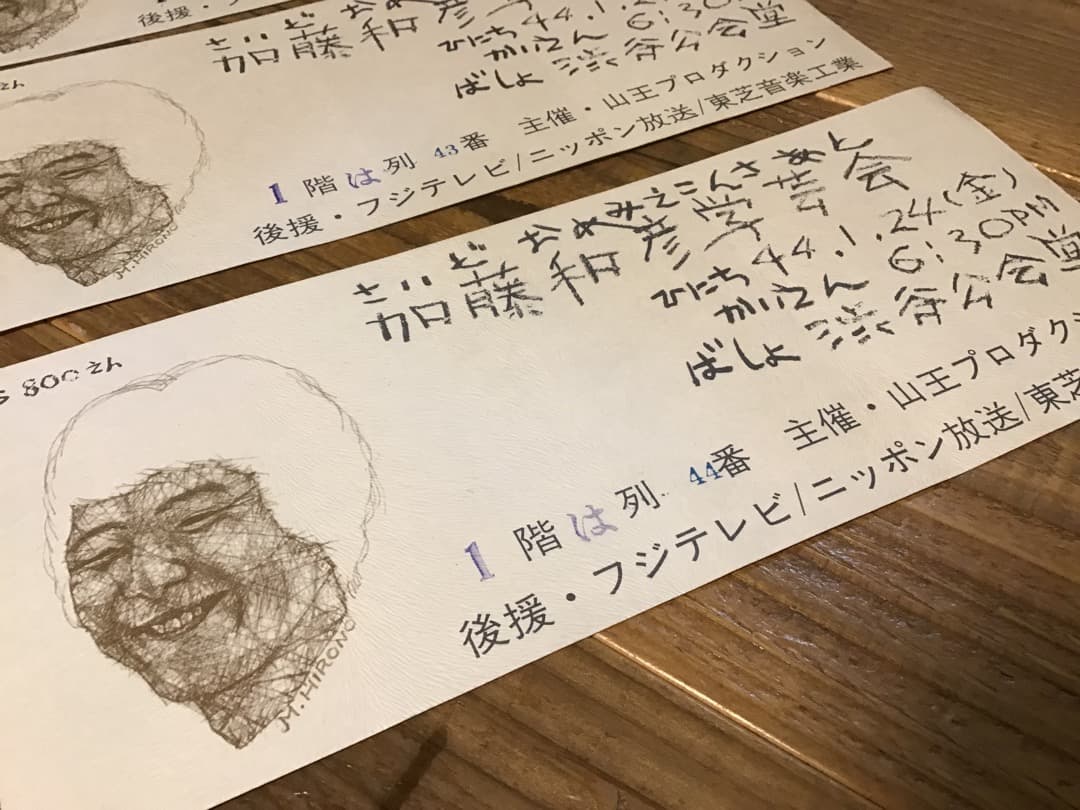 後援・フ
えん
おめみえ
加藤和彦
ひにち 44.1.2
かいえん 6:30
ばしょ 渋谷公会堂
1階は列 43番 主催・山王プロダクション
後援・フジテレビ/ニッポン放送/東芝音楽工業
M.HIRONO
S 800えん
おめみえこんさあと
加藤和彦学芸会
ひにち 44.1.24(金)
かいえん 6:30PM
ばしょ 渋谷公会堂
1階は列 44番 主催・山王プロダクシ
後援・フジテレビ/ニッポン放送/東芝
M.HIRONO